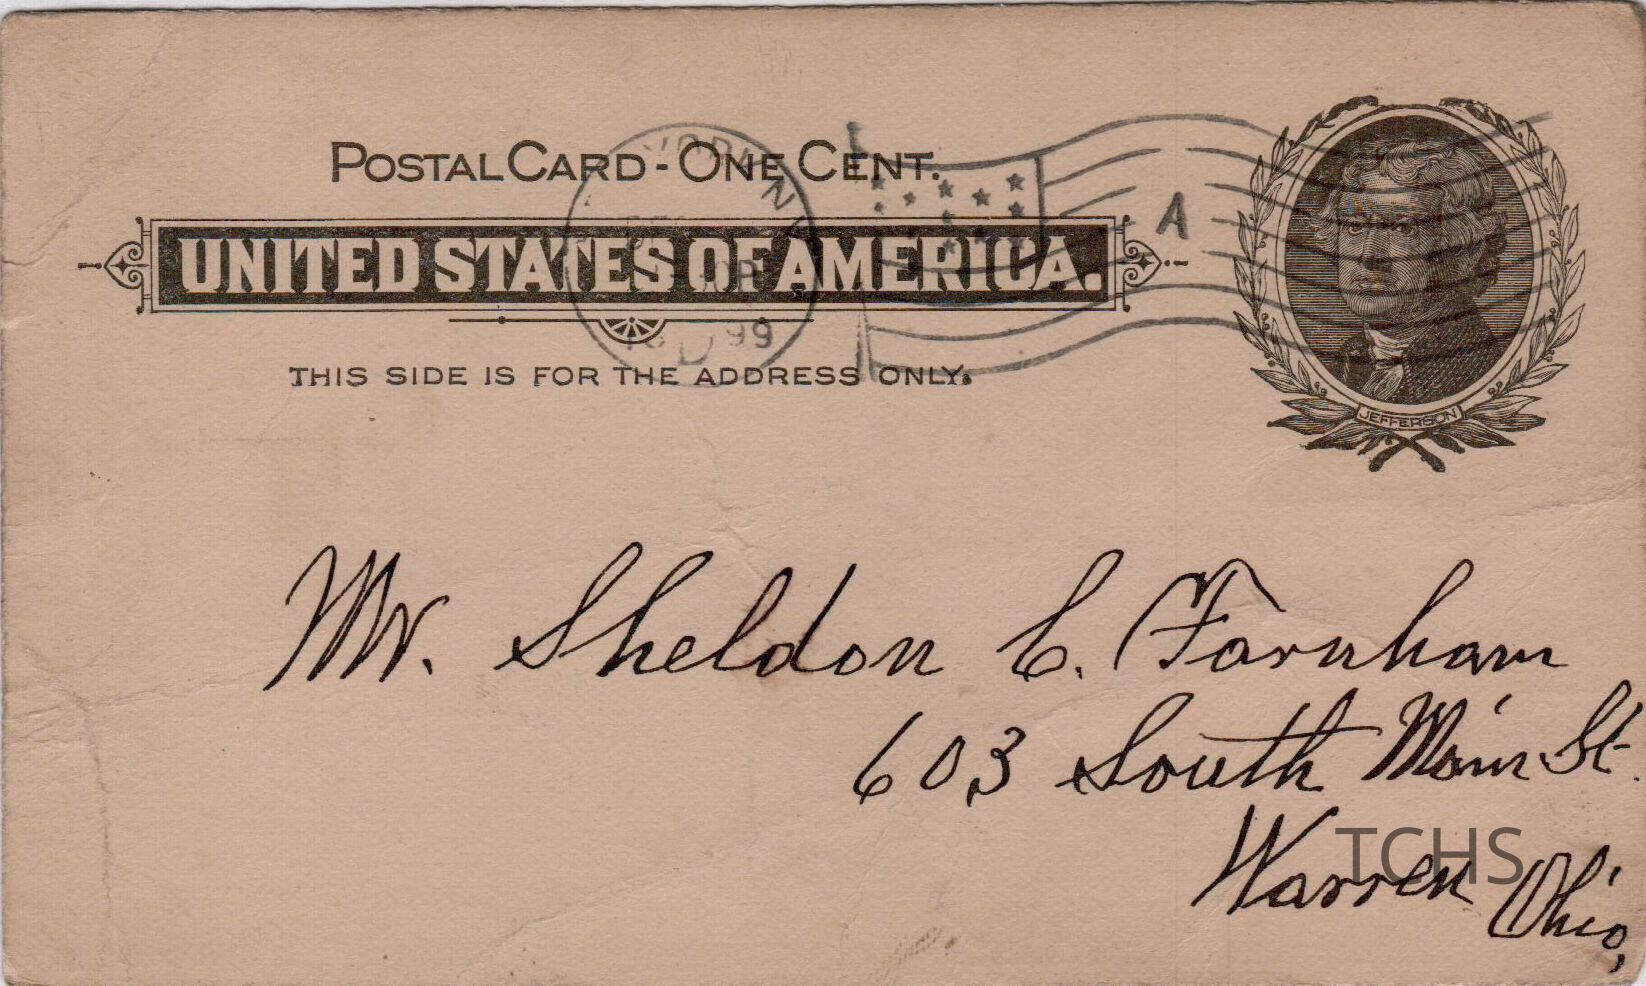 POSTAL CARD - ONE CENT.
UNITED STATES OF AMERICA.
THIS SIDE IS FOR THE ADDRESS ONLY.
N.Y.
99
A
JEFFERSON
Mr. Sheldon C. Farnham
603 South Main St.
Warren Ohio,
TCHS